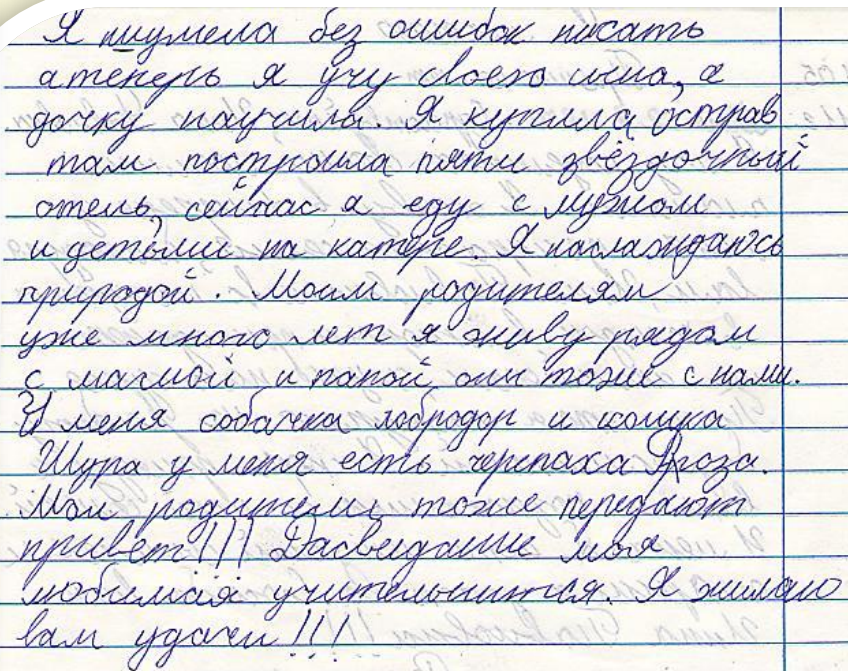 Я ниумела без ошибок писать
а теперь я учу своего сина, а
дочку научила. Я купила острав
там построила пяти звёздочный
отель, сейчас я еду с мужом
и детьми на катере. Я наслаждаюсь
природой. Моим родителям
уже много лет я живу рядом
с мамой и папой они тоже с нами.
У меня собачка лобродор и кошка
Шура у меня есть черепаха Роза.
Мои родители тоже передают
привет!!! Дасведание моя
любимая учительница. Я жилаю
вам удачи!!!